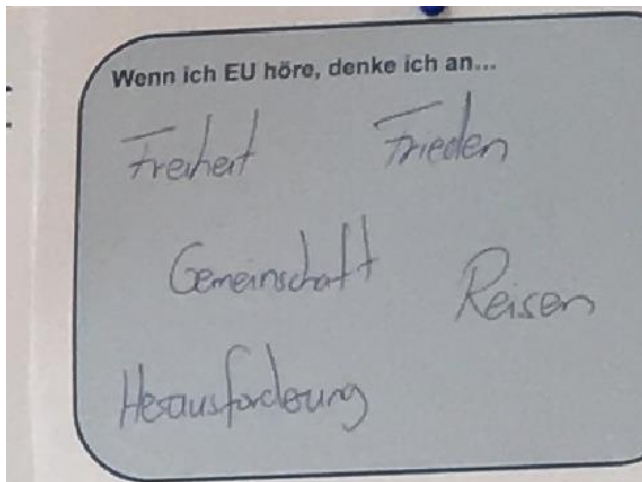 Wenn ich EU höre, denke ich an...
Freiheit Frieden
Gemeinschaft Reisen
Herausforderung